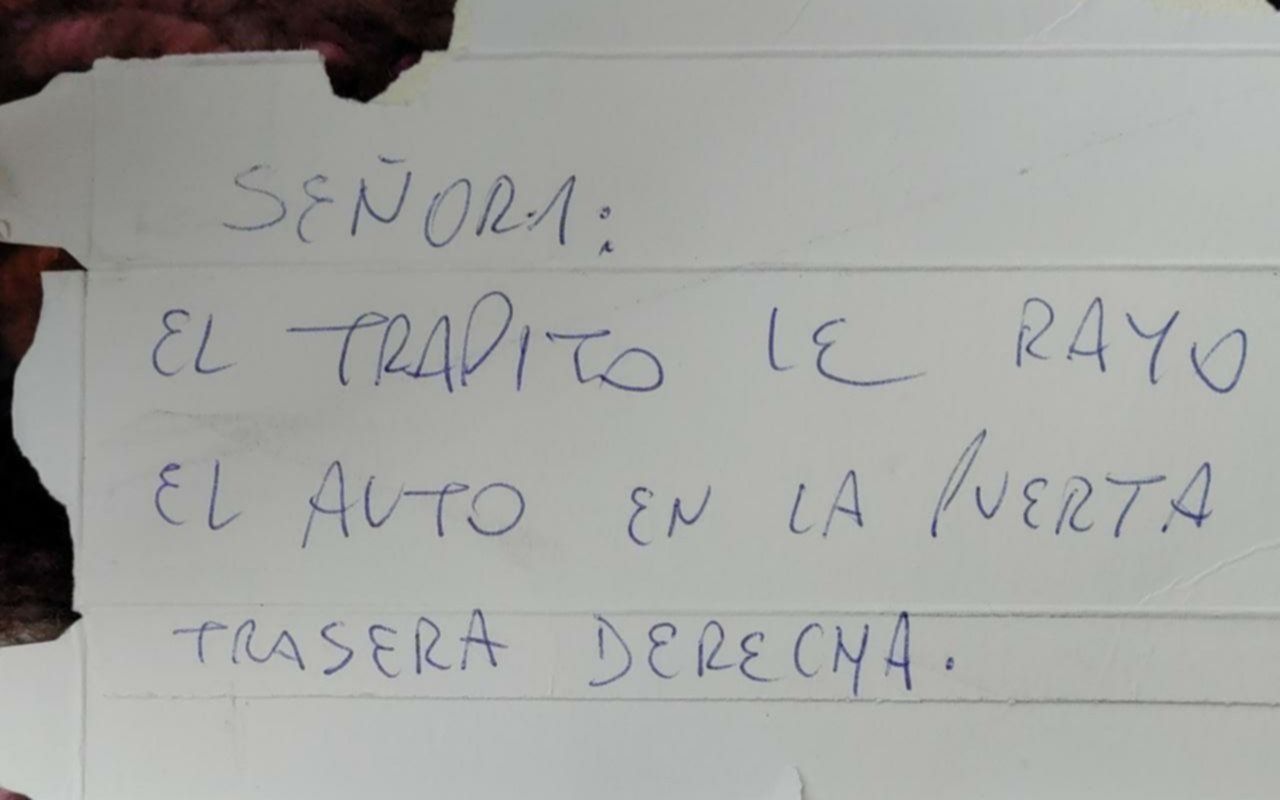 SEÑORA:
EL TRAPITO LE RAYO
EL AUTO EN LA PUERTA
TRASERA DERECHA.